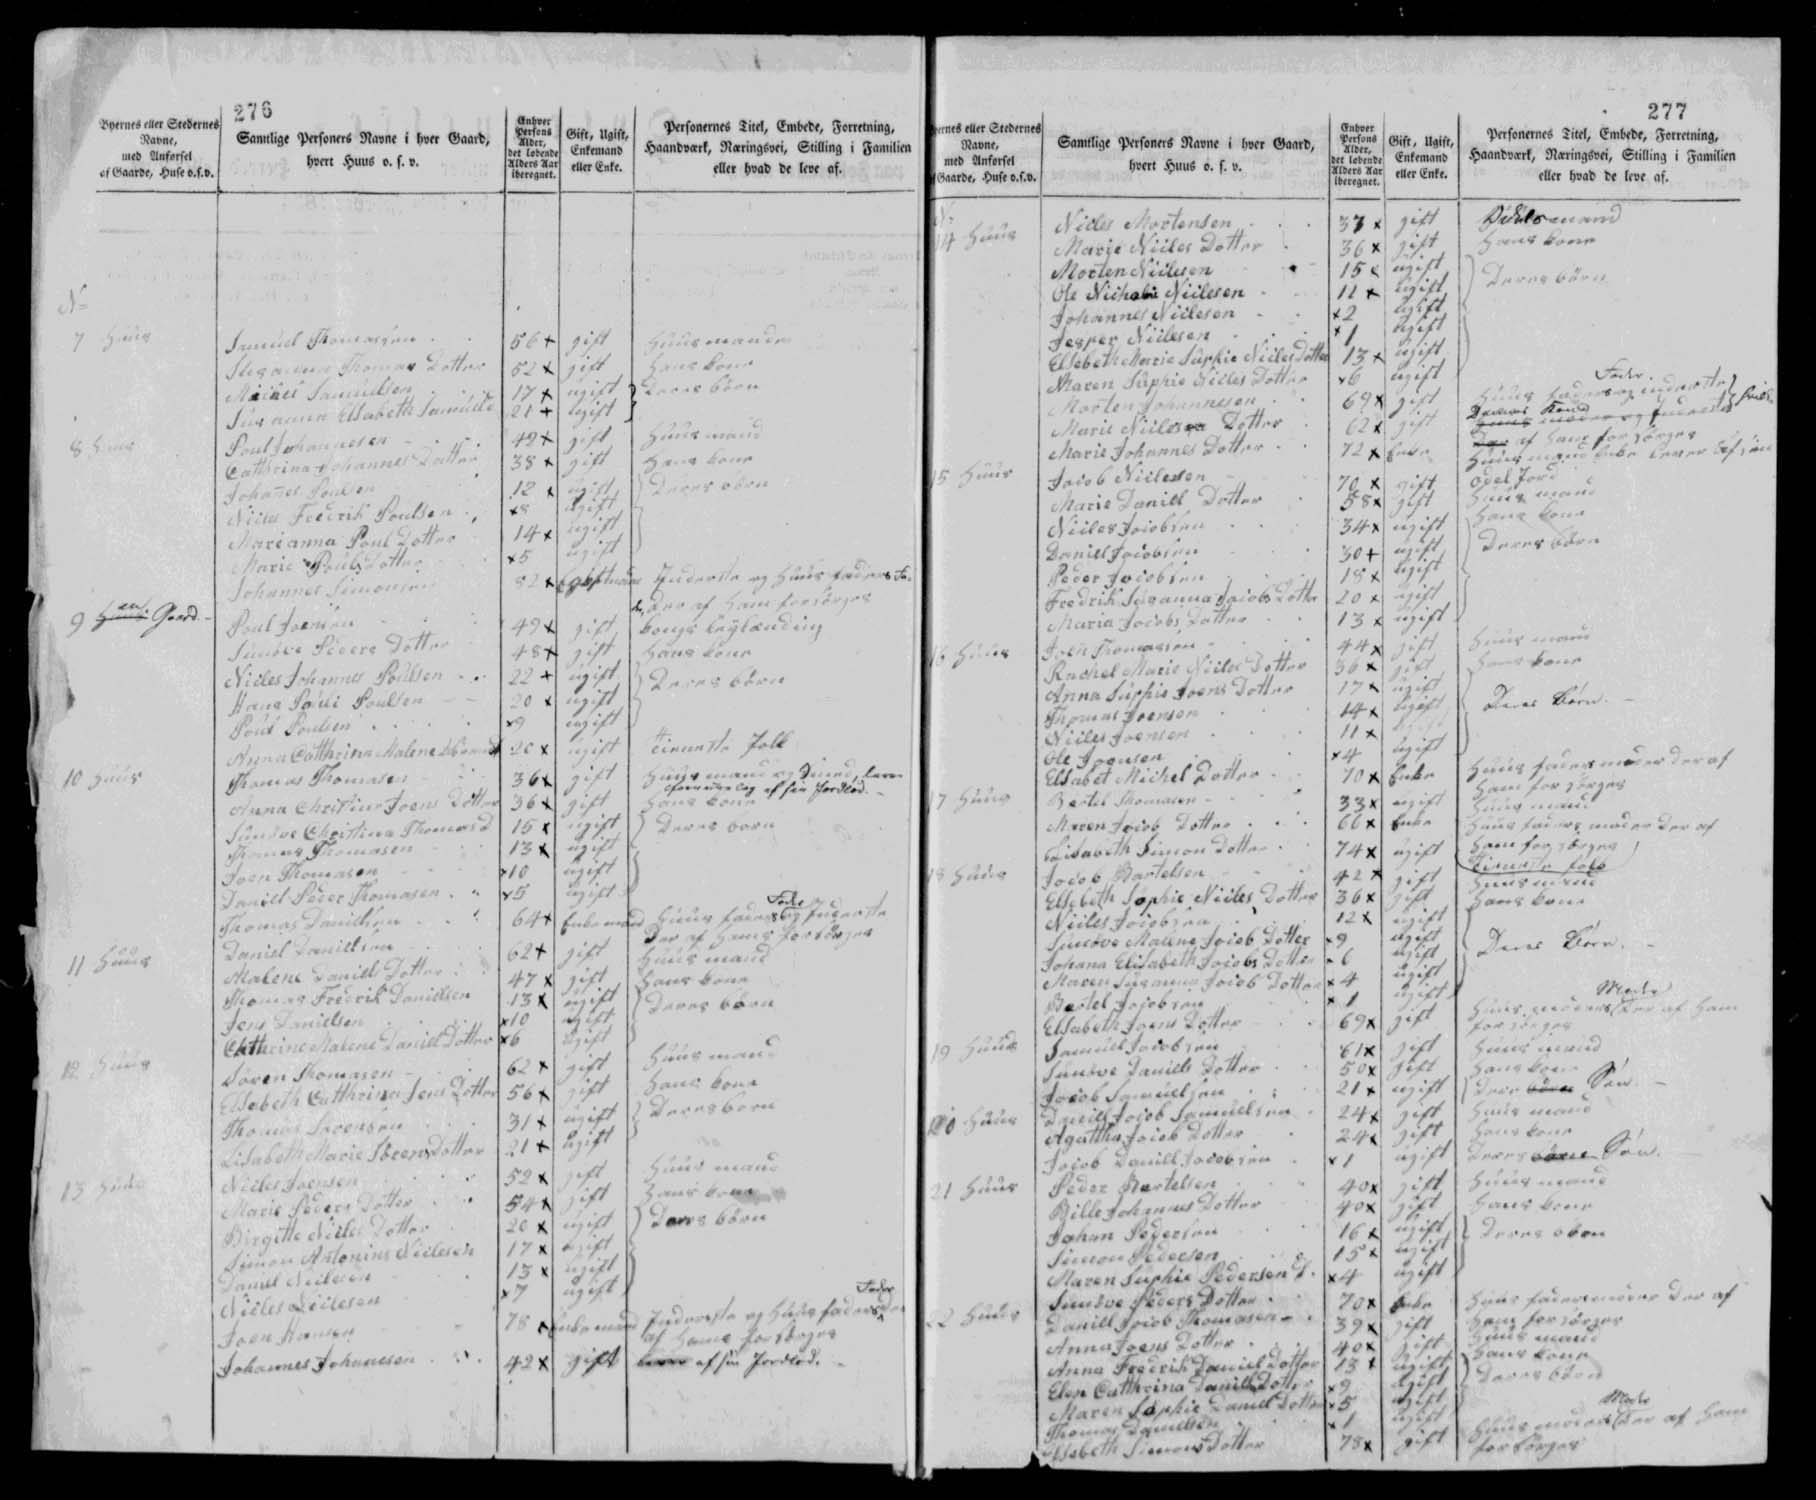 276
Byernes eller Stedernes Navne, med Anførsel af Gaarde, Huse o.s.v.
Samtlige Personers Navne i hver Gaard, hvert Huus o. s. v.
Enhver Persons Alder, det løbende Alders Aar iberegnet.
Gift, Ugift, Enkemand eller Enke.
Personernes Titel, Embede, Forretning, Haandværk, Næringsvei, Stilling i Familien eller hvad de leve af.
No
7 Huus Samuel Thomassen 56 x gift Huusmand
Susanna Thomas Dotter 52 x gift Hans kone
Samuelsen 17 x ugift Deres børn
Susanna Elsabeth Samuels 21 + ugift
8 Huus Poul Johannesen 49 x gift Huus mand
Cathrina Johannes Dotter 38 x gift Hans kone
Johanes Poulsen 12 x ugift Deres børn
Niels Fredrik Poulsen x8 ugift
Marianna Poul Dotter 14 x ugift
Marie Pouls Dotter x5 ugift
Johannes Simonsen 82 x Inderste og Huus faders
der af Ham forsørges
9 Gaard Poul Joensen 49 x gift kongs
Sunøve Peders Dotter 48 x gift Hans kone
Nieles Johannes Poulsen 22 + ugift Deres børn
Hans Pauli Poulsen 20 x ugift
Poul Poulsen x9 ugift
Anna Catthrina Malene 20 x ugift Tieneste Folk
10 Huus Thomas Thomasen 36 x gift Huus mand og Smed, lever
af sin Jordlod.
Anna Christine Joens Dotter 36 x gift Hans kone
Sunøve Christina Thomas D 15 x ugift Deres børn
Thomas Thomasen 13 x ugift
Joen Thomasen x10 ugift
Daniel Peder Thomasen x5 ugift
Fader
Thomas Danielsen 64 x Enkemand Huus faders og Inderste
Der af Hans forsørges
11 Huus Daniel Danielsen 62 + gift Huus mand
Malene Daniel Dotter 47 x gift Hans kone
Thomas Fredrik Danielsen 13 x ugift Deres børn
Jens Danielsen x10 ugift
Cathrine Malene Daniel Dotter x6 ugift
12 Huus Søren Thomasen 62 x gift Huus mand
Elsebeth Catthrina Jens Dotter 56 x gift Hans kone
Thomas Sørensen 31 x ugift Deres børn
Lisabeth Marie Sørens Dotter 21 x ugift
13 Huus Nieles Joensen 52 x gift Huus mand
Marie Peders Dotter 54 x gift Hans kone
Birgitte Nieles Dotter 20 x ugift Deres børn
Simon Antonius Nielesen 17 x ugift
Daniel Nielesen 13 x ugift
Nieles Nielesen x7 ugift
Fader
Joen Hansen 78 x Enkemand Inderste og Huus faders
af Hans forsørges
Johannes Johanesen 42 x gift lever af sin Jordlod.
277
Byernes eller Stedernes Navne, med Anførsel af Gaarde, Huse o.s.v.
Samtlige Personers Navne i hver Gaard, hvert Huus o. s. v.
Enhver Persons Alder, det løbende Alders Aar iberegnet.
Gift, Ugift, Enkemand eller Enke.
Personernes Titel, Embede, Forretning, Haandværk, Næringsvei, Stilling i Familien eller hvad de leve af.
No
14 Huus Nieles Mortensen 37 x gift
Marie Nieles Dotter 36 x gift Hans kone
Morten Nielesen 15 x ugift Deres børn
Ole Nielesen 11 x ugift
Johannes Nielesen x2 ugift
Jesper Nielesen x1 ugift
Elsebeth Marie Suphie Nieles Dotter 13 x ugift
Maren Suphie Nieles Dotter x6 ugift
Fader
Morten Johannesen 69 x gift Huus faders og inderste
Marie Nielesen Dotter 62 x gift
af Ham forsørges
Marie Johannes Dotter 72 x Enke Huus mand Enke lever af sin
odel Jord
15 Huus Jacob Nielesen 70 x gift Huus mand
Marie Daniel Dotter 58 x gift Hans kone
Nieles Jacobsen 34 x ugift Deres børn
Daniel Jacobsen 30 + ugift
Peder Jacobsen 18 x ugift
Fredrik Susanna Jacobs Dotter 20 x ugift
Maria Jacobs Dotter 13 x ugift
16 Huus Joen Thomasen 44 x gift Huus mand
Rachel Marie Nieles Dotter 36 x gift Hans kone
Anna Suphie Joens Dotter 17 x ugift Deres Børn.
Thomas Joensen 14 x ugift
Nieles Joensen 11 x ugift
Ole Joensen x4 ugift
Elsabet Michel Dotter 70 x Enke Huus faders moder der af
Ham forsørges
17 Huus Bertel Thomasen 33 x ugift Huus mand
Maren Jacob Dotter 66 x Enke Huus faders moder der af
Ham forsørges
Lisabeth Simon Dotter 74 x ugift Tieneste folk
18 Huus Jacob Bartelsen 42 x gift Huus mand
Elsebeth Sophie Nieles Dotter 36 x gift Hans kone
Nieles Jacobsen 12 x ugift Deres Børn.
Sunøve Malene Jacob Dotter x9 ugift
Johana Elisabeth Jacobs Dotter x6 ugift
Maren Susanna Jacob Dotter x4 ugift
Bertel Jacobsen x1 ugift
Moder
Elsabeth Joens Dotter 69 x gift Huus moders der af Ham
forsørges
19 Huus Samuel Jacobsen 61 x gift Huus mand
Sunøve Daniels Dotter 50 x gift Hans kone
Jacob Samuelsen 21 x ugift Deres børn Søn.
20 Huus Daniel Jacob Samuelsen 24 x gift Huus mand
Agattha Jacob Dotter 24 x gift Hans kone
Jacob Daniel Jacobsen x1 ugift Deres børn Søn.
21 Huus Peder Bertelsen 40 x gift Huus mand
Bille Johannes Dotter 40 x gift Hans kone
Johan Pedersen 16 x ugift Deres børn
Simon Pedersen 15 x ugift
Maren Suphie Pedersen D. x4 ugift
Sunøve Peders Dotter 70 x Enke Huus faders moder der af
Ham forsørges
22 Huus Daniel Jacob Thomasen 39 x gift Huus mand
Anna Joens Dotter 40 x gift Hans kone
Anna Fredrik Daniel Dotter 13 x ugift Deres børn
Elen Catthrina Daniels Dotter x9 ugift
Maren Sophie Daniel Dotter x5 ugift
Thomas Danielsen x1 ugift
Moder
Elsebeth Simons Dotter 78 x gift Huus moders der af Ham
forsørges